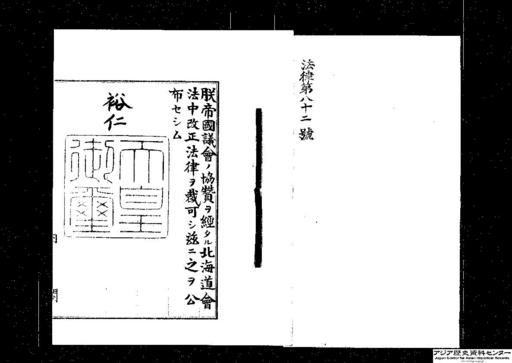 法律第八十二號
朕帝國議會ノ協賛ヲ經タル北海道會
法中改正法律ヲ裁可シ茲ニ之ヲ公
布セシム
裕仁
天皇
御璽
内
閣
アジア歴史資料センター
Japan Center for Asian Historical Records